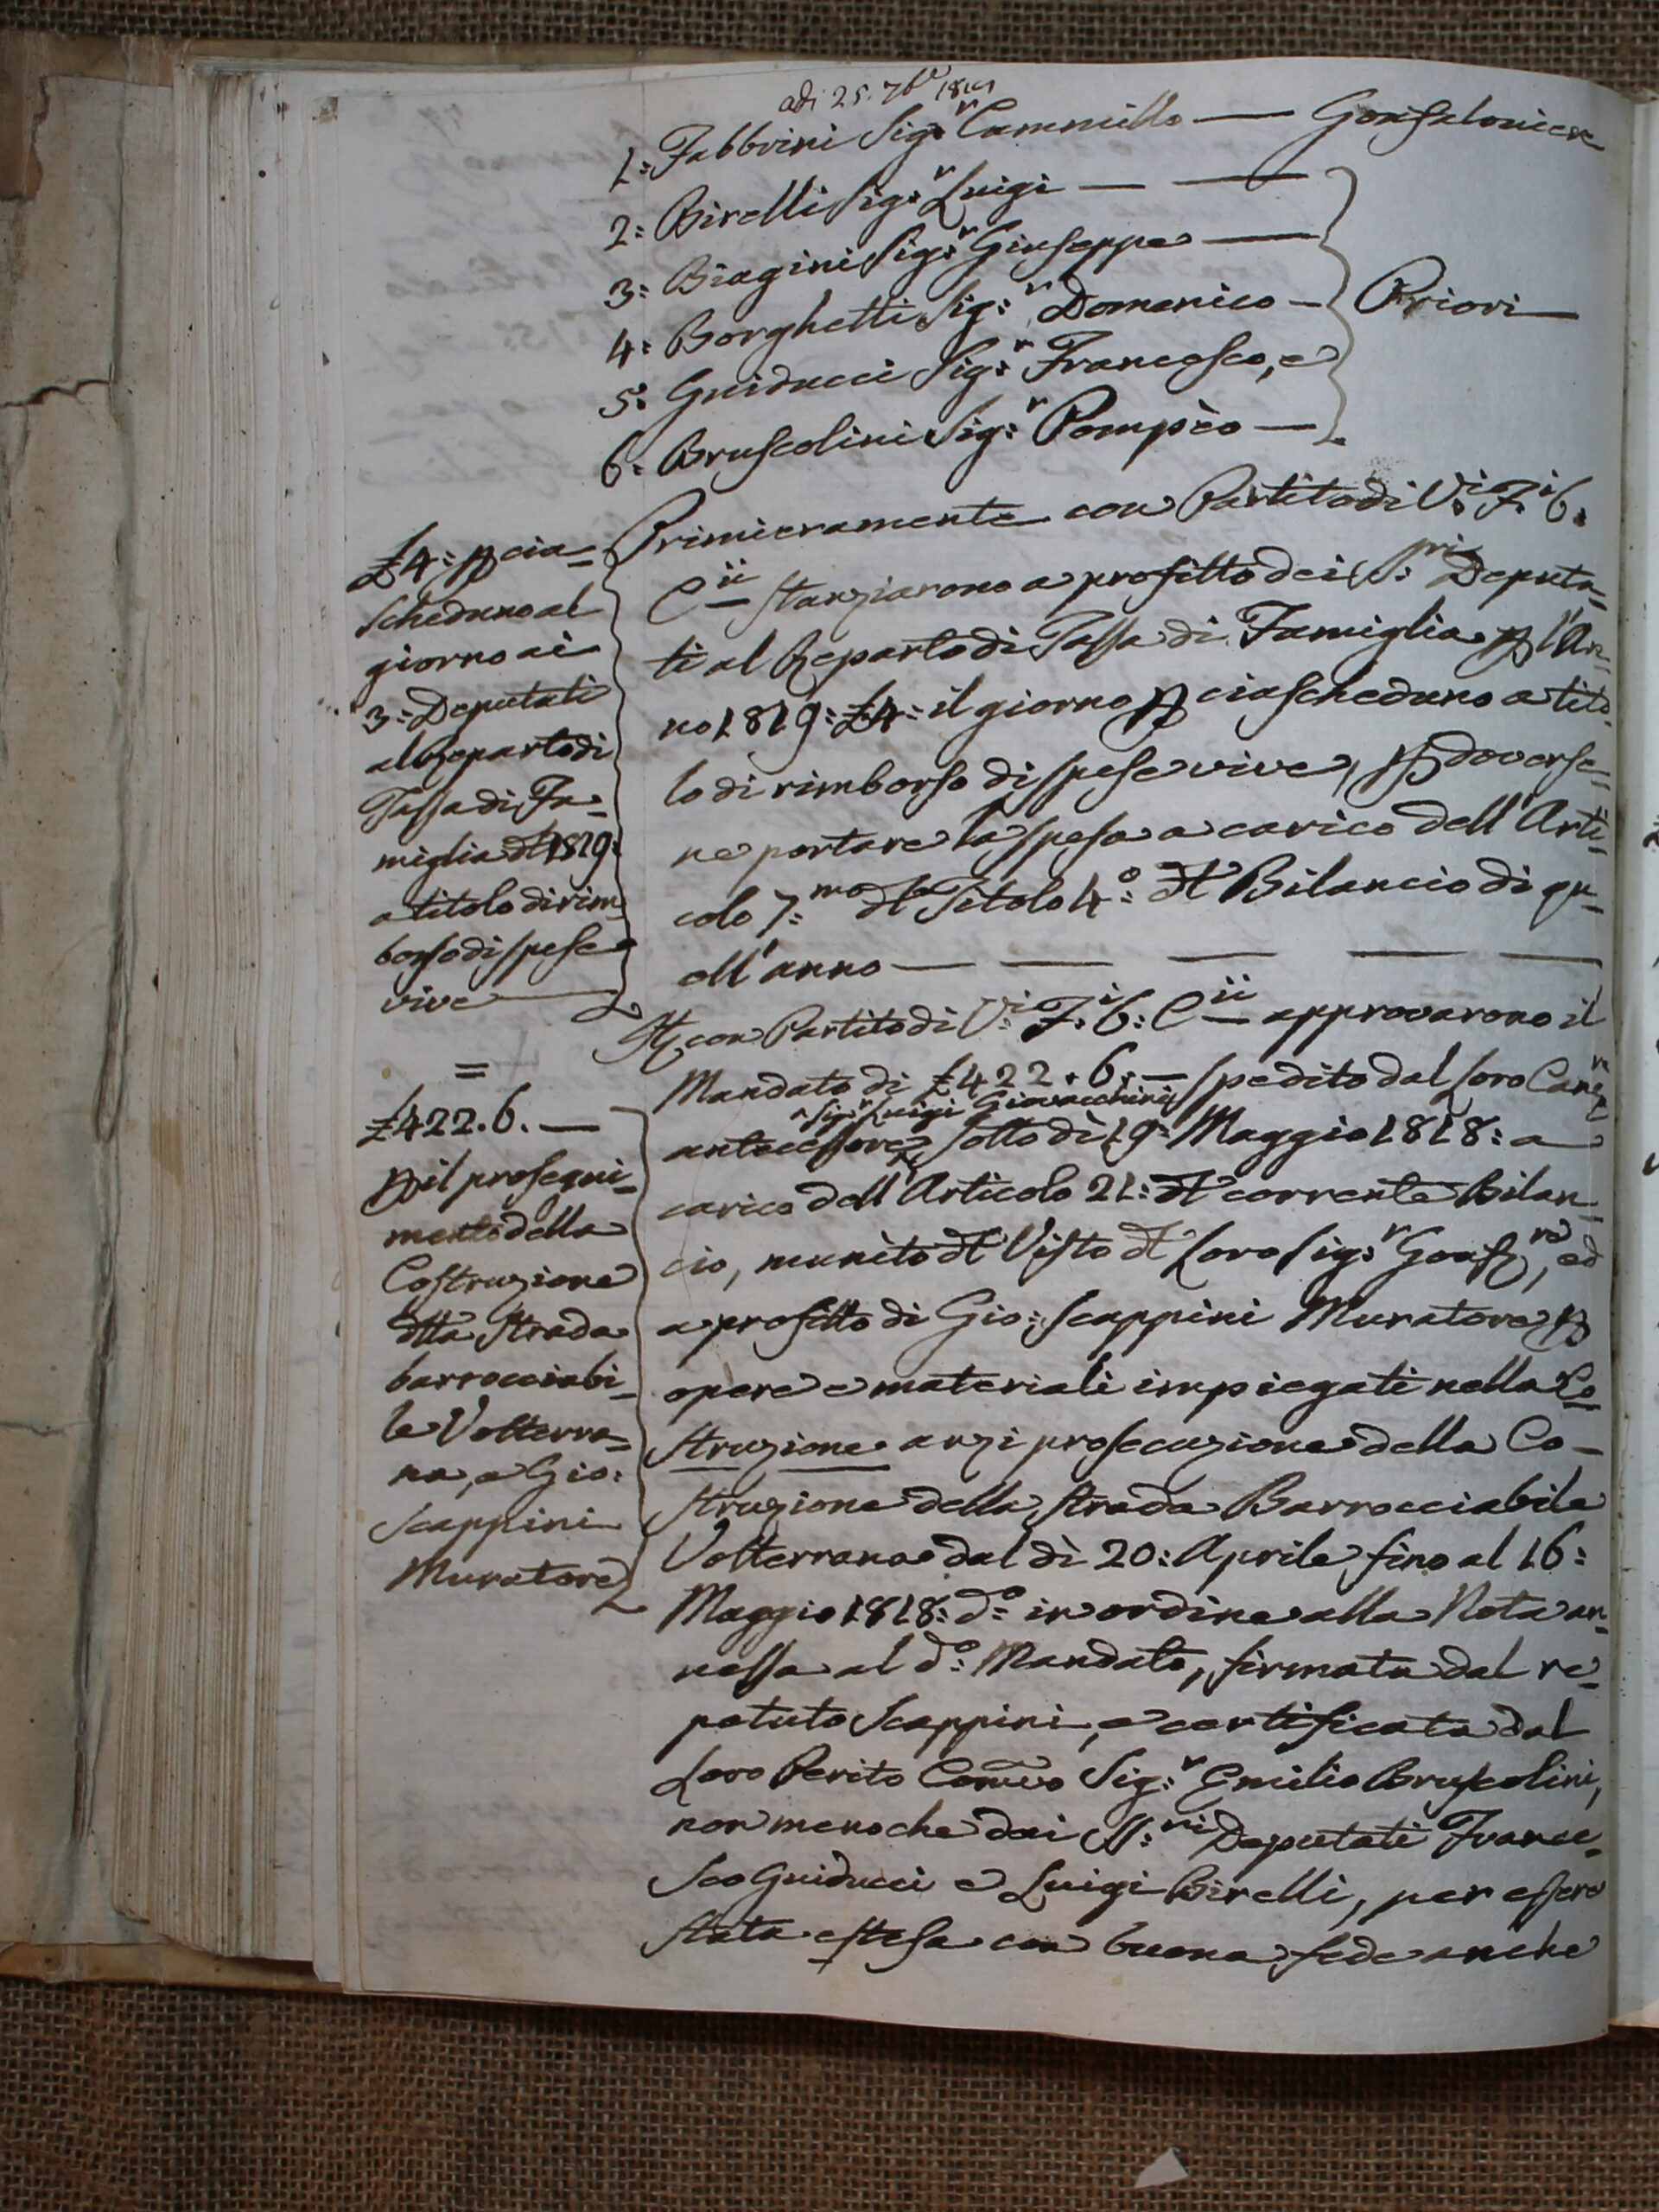 adì 25. 7bre
1: Fabbrini Sig:r Cammillo — Gonfaloniere
2: Birelli Sig:r Luigi — —
3: Biagini Sig:r Giuseppe —
4: Borghetti Sig:r Domenico —
Priori
5: Guiducci Sig:r Francesco, e
6: Bruscolini Sig:r Pompèo —
£4: p cia=
scheduno al
giorno ai
3: Deputati
al Reparto di
Tassa di Fa=
miglia dl 1819:
a titolo di rim=
borso di spese
vive
Primieramente con Partito di V:i F:i 6.
C ii stanziarono a profitto dei SS:ri Deputa=
ti al Reparto di Tassa di Famiglia p l'An=
no 1819: £4: il giorno p ciascheduno a tito=
lo di rimborso di spese vive, p doverse=
ne portare la spesa a carico dell'Arti=
colo 7:mo dl Titolo 4:o dl Bilancio di qu=
ell'anno — — — — —
=
£422.6.—
p il prosegui=
mento della
Costruzione
dlla Strada
barrocciabi=
le Volterra=
na, a Gio:
Scappini
Muratore
It con Partito di V:i F:i 6: C ii approvarono il
Mandato di £422.6:— spedito dal loro Canc:re
Sig:r Luigi Giovacchini
antecessore, sotto dì 19: Maggio 1818: a
carico dell'Articolo 21: dl corrente Bilan=
cio, munito dl Visto dl Loro Sig:r Gonf:re, ed
a profitto di Gio: Scappini Muratore p
opere e materiali impiegati nella Co=
struzione anzi prosecuzione della Co=
struzione della Strada Barrocciabile
Volterrana dal dì 20: Aprile fino al 16:
Maggio 1818: d:o in ordine alla Nota an=
nessa al d:o Mandato, firmata dal re=
petuto Scappini, e certificata dal
Loro Perito Com̃vo Sig:r Emilio Bruscolini,
non meno che dai SS:ri Deputati France=
sco Guiducci e Luigi Birelli, per essere
stata estesa con buona fede anche